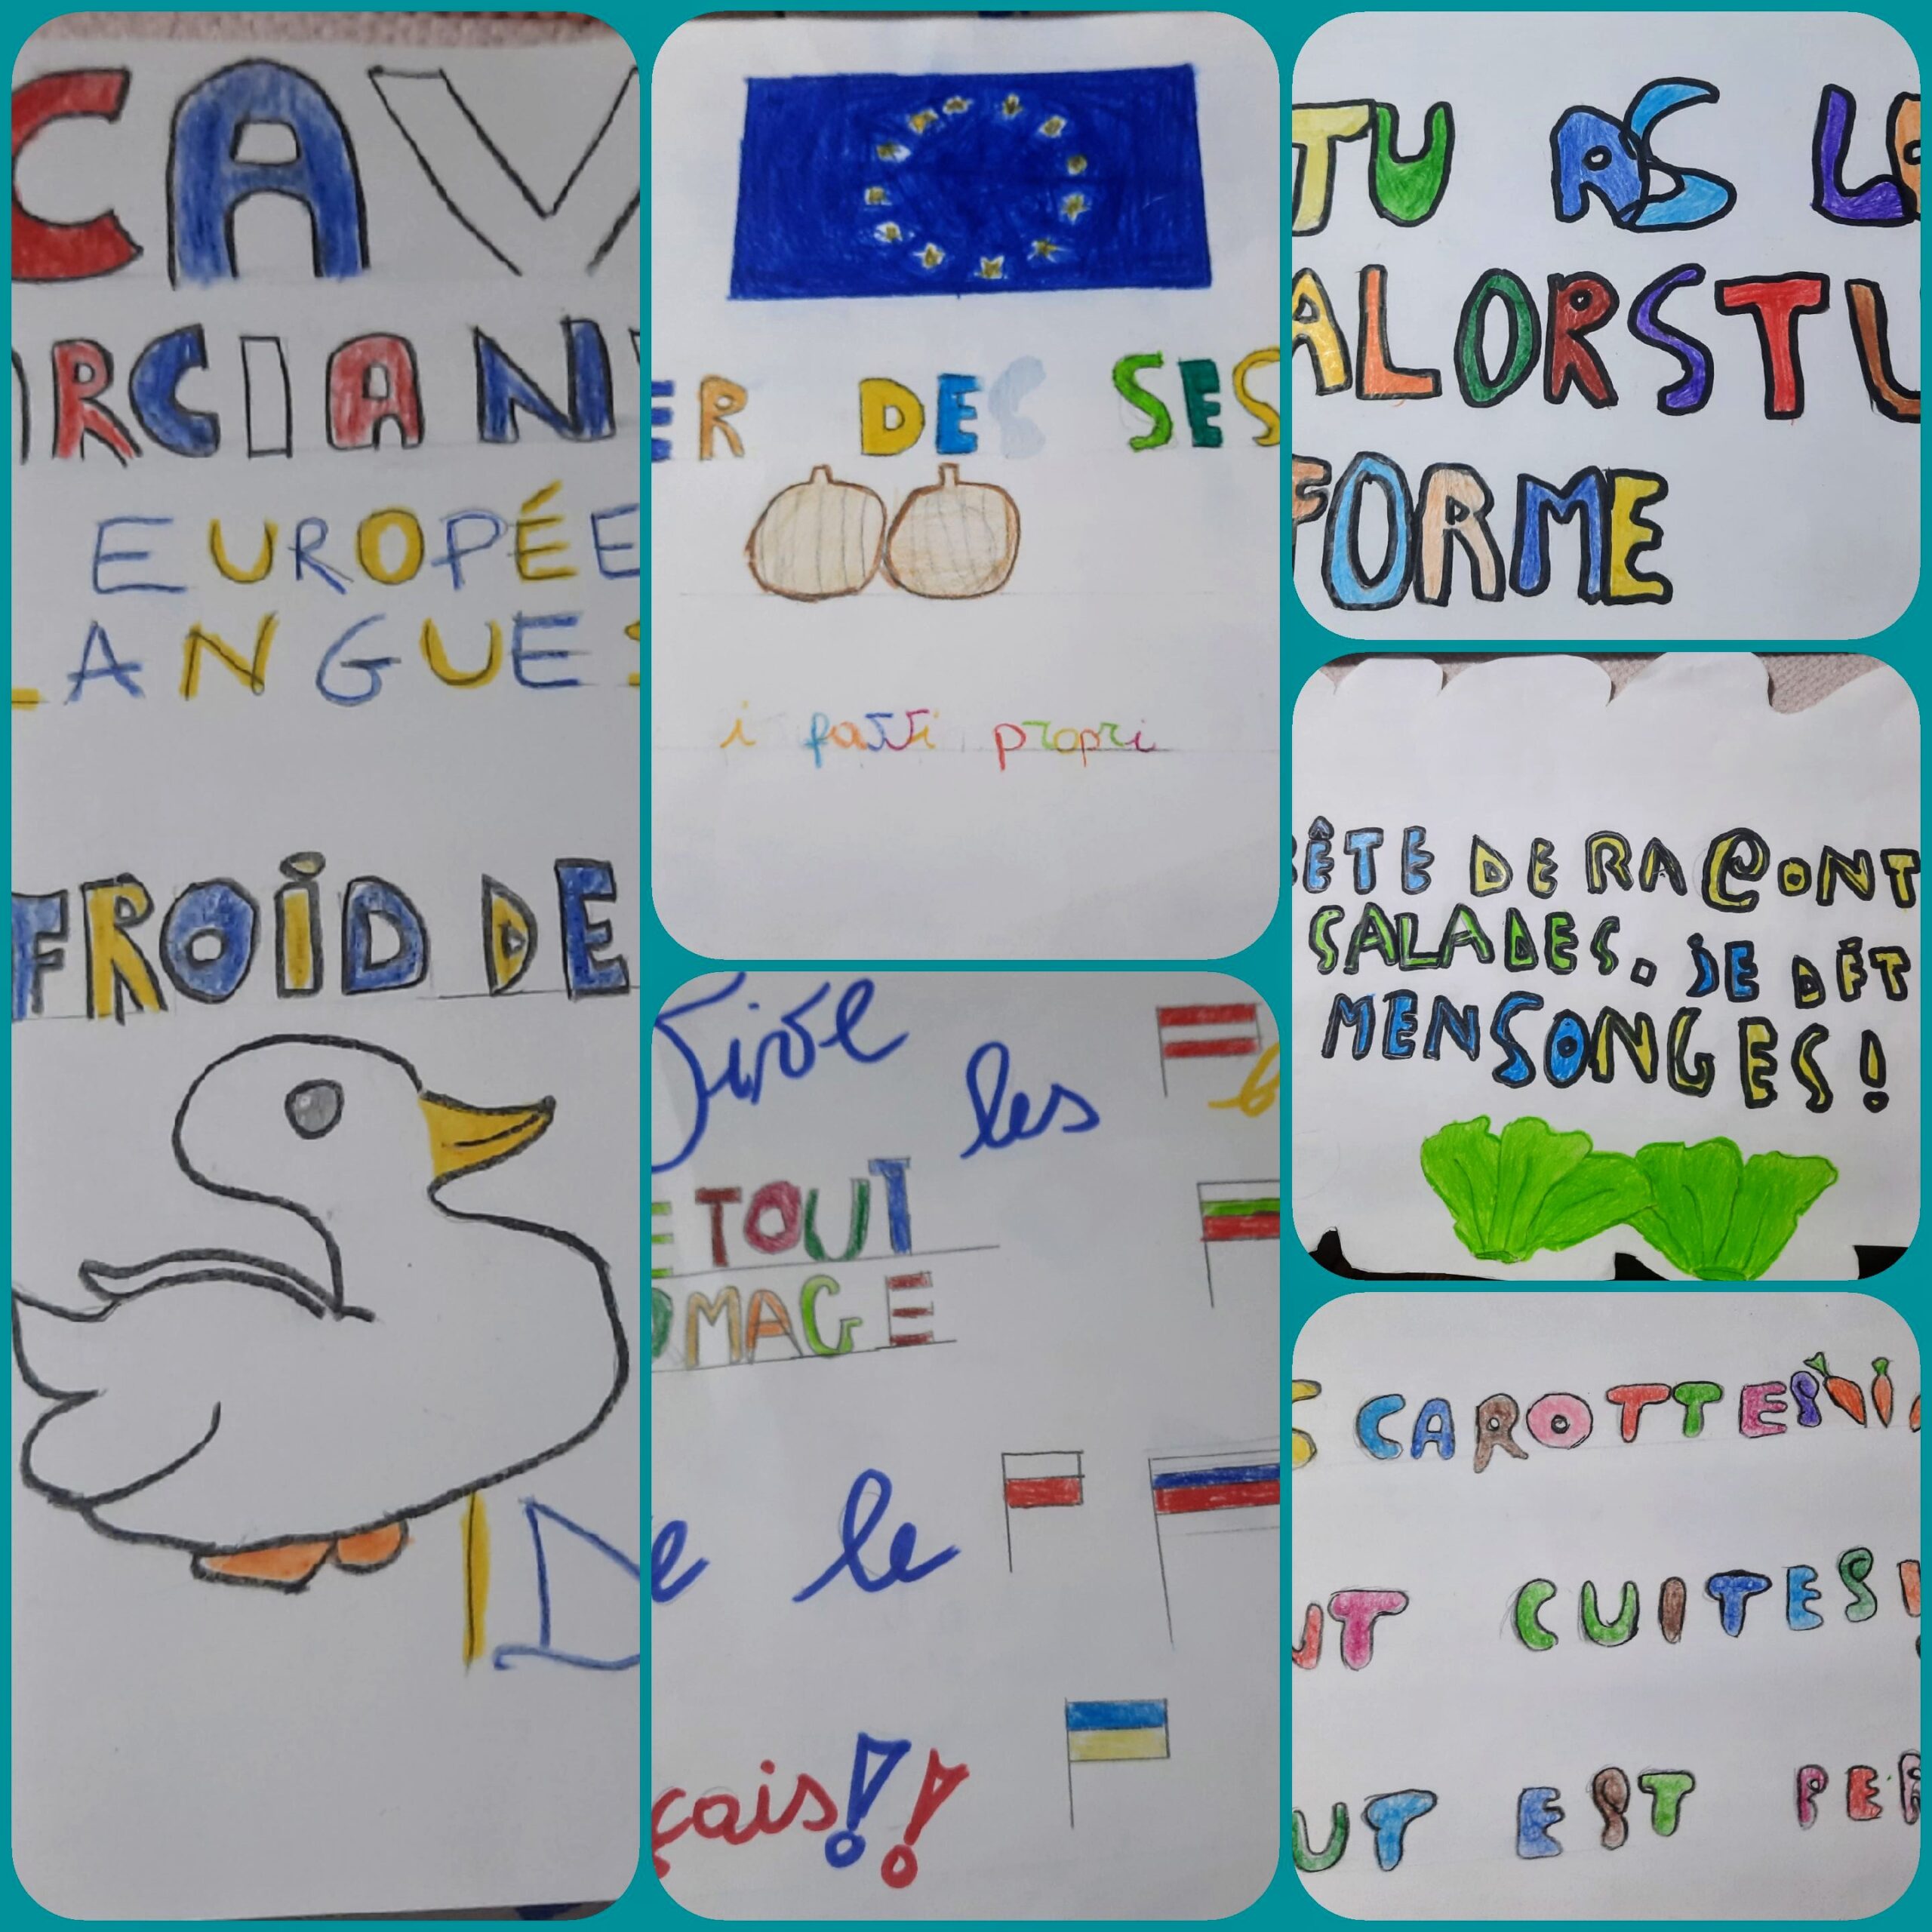 CAV
RCIAN
EUROPÉE
LANGUES
FROID DE
ID
ER DEC SES
i fatti propri
Vive les
E TOUT
OMAGE
le
çais!!
TU AS LA
ALORS TU
FORME
ÊTE DE RACONT
SALADES. JE DÉT
MENSONGES!
S CAROTTES
UT CUITES
UT EST PER